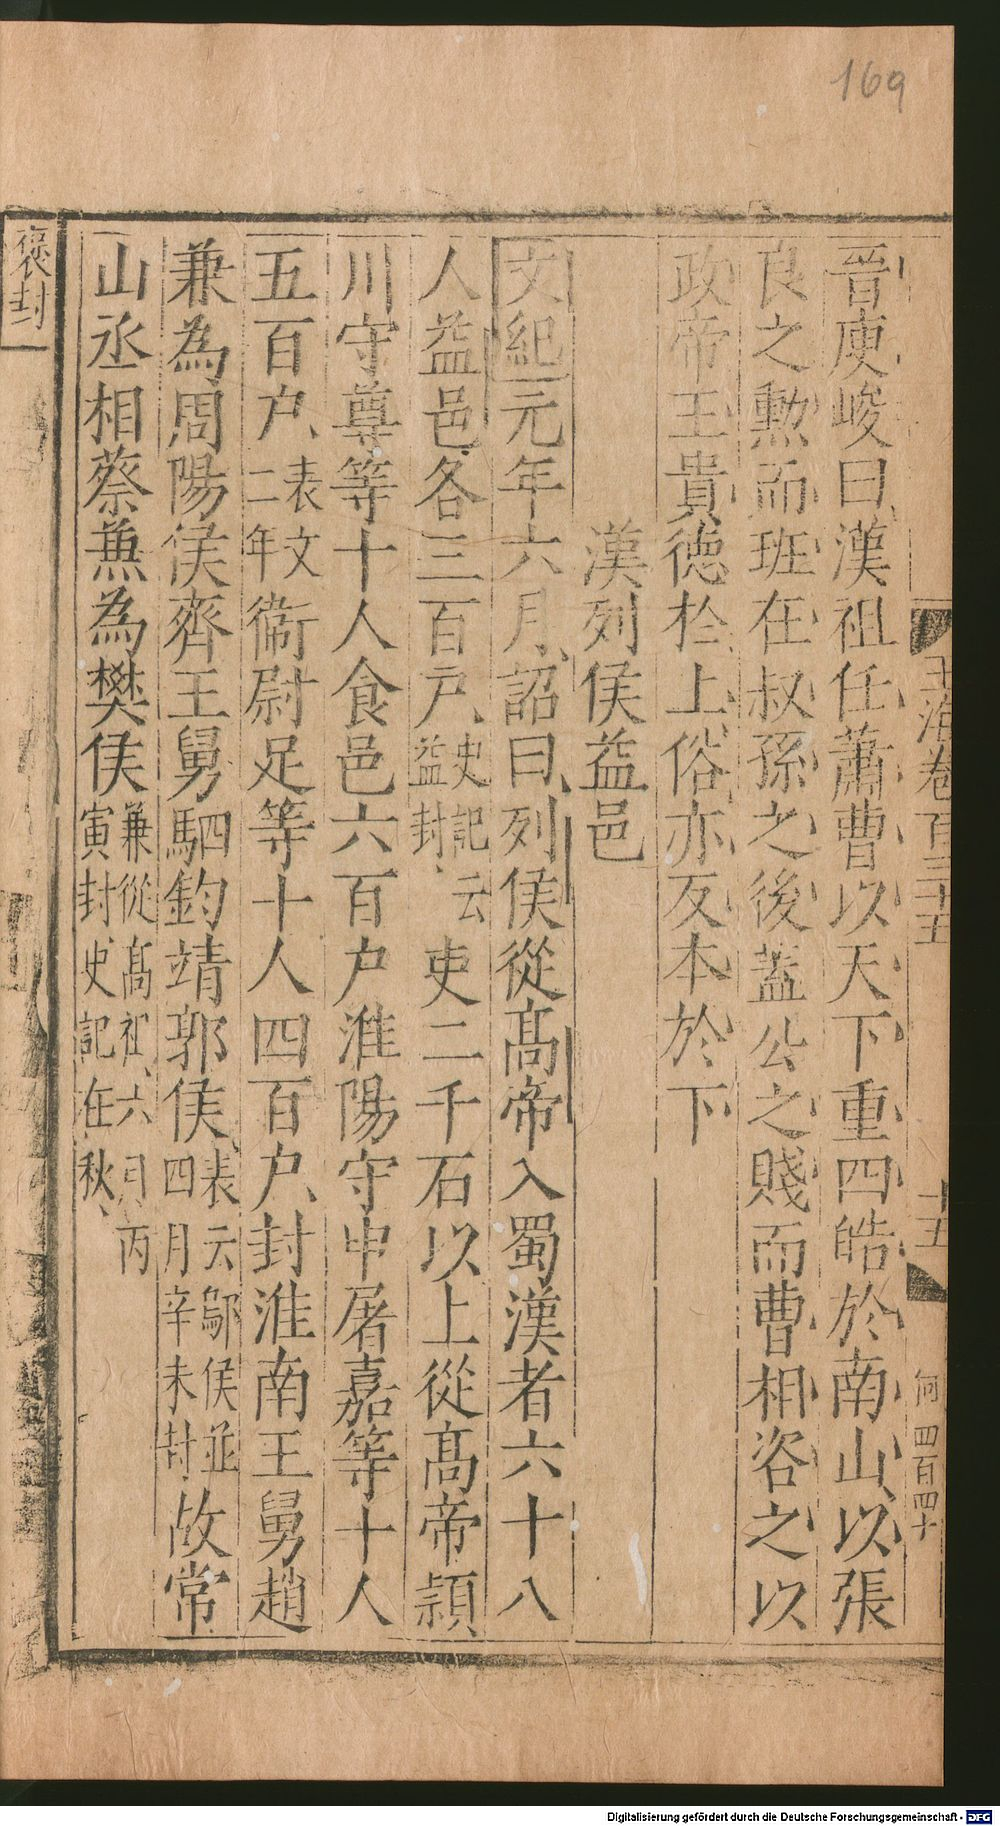 169
玉海卷百三十五
十五
何 四百四十
晉庾峻曰漢祖任蕭曹以天下重四皓於南山以張
良之勲而班在叔孫之後蓋公之賤而曹相咨之以
政帝王貴徳於上俗亦反本於下
漢列侯益邑
文紀元年六月詔曰列侯從髙帝入蜀漢者六十八
人益邑各三百户史記云益封吏二千石以上從髙帝潁
川守尊等十人食邑六百户淮陽守申屠嘉等十人
五百户表文二年衞尉足等十人四百户封淮南王舅趙
兼為周陽侯齊王舅駟鈞靖郭侯表云鄔侯並四月辛未封故常
山丞相蔡兼為樊侯兼從髙祖六月丙寅封史記在秋
褒封
Digitalisierung gefördert durch die Deutsche Forschungsgemeinschaft - DFG